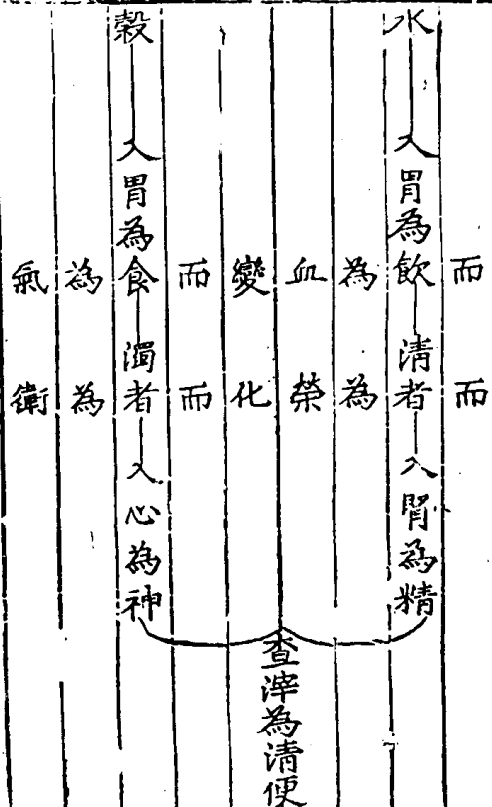 而而
水入胃為飲清者入腎為精
為為
血榮
查滓為清便
變化
而而
穀入胃為食濁者入心為神
為為
氣衛